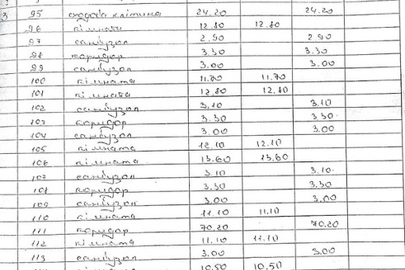 3 95 сходова клітина 24.20 24.20
96 кімната 12.80 12.80
97 санвузол 2.90 2.90
98 коридор 3.30 3.30
99 санвузол 3.00 3.00
100 кімната 11.70 11.70
101 кімната 12.80 12.80
102 санвузол 3.10 3.10
103 коридор 3.30 3.30
104 санвузол 3.00 3.00
105 кімната 12.10 12.10
106 кімната 13.60 13.60
107 санвузол 3.10 3.10
108 коридор 3.30 3.30
109 санвузол 3.00 3.00
110 кімната 11.10 11.10
111 коридор 70.20 70.20
112 кімната 11.10 11.10
113 санвузол 3.00 3.00
10.50 10.50